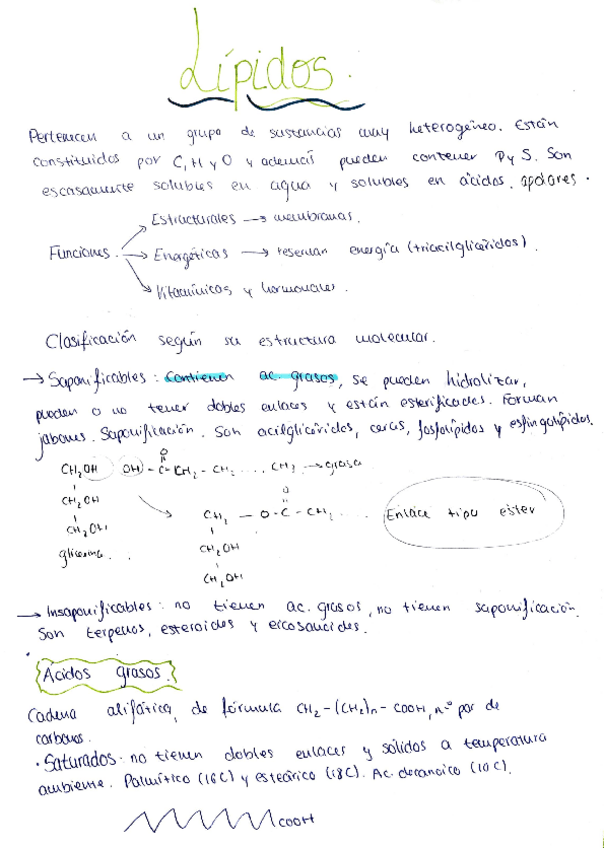 Lípidos.
Pertenecen a un grupo de sustancias muy heterogéneo. Están
constituidos por C, H y O y además pueden contener P y S. Son
escasamente solubles en agua y solubles en ácidos apolares.
Estructurales → membranas.
Funciones. → Energéticas → reservan energía (triacilglicéridos).
Vitamínicos y hormonales.
Clasificación según su estructura molecular.
→ Saponificables: contienen ac. grasos, se pueden hidrolizar,
pueden o no tener dobles enlaces y están esterificados. Forman
jabones. Saponificación. Son acilglicéridos, ceras, fosfolípidos y esfingolípidos.
CH2OH OH - C - CH2 - CH2 .... CH3 → grasa
O
CH2OH
CH2OH
CH2 - O - C - CH2 ....
O
Enlace tipo ester
CH2OH
CH2OH
→ Insaponificables: no tienen ac. grasos, no tienen saponificación.
Son terpenos, esteroides y eicosanoides.
Ácidos grasos.
Cadena alifática, de fórmula CH2 - (CH2)n - COOH, nº par de
carbonos.
· Saturados: no tienen dobles enlaces y sólidos a temperatura
ambiente. Palmítico (16C) y esteárico (18C). Ac. decanoico (10C).
COOH